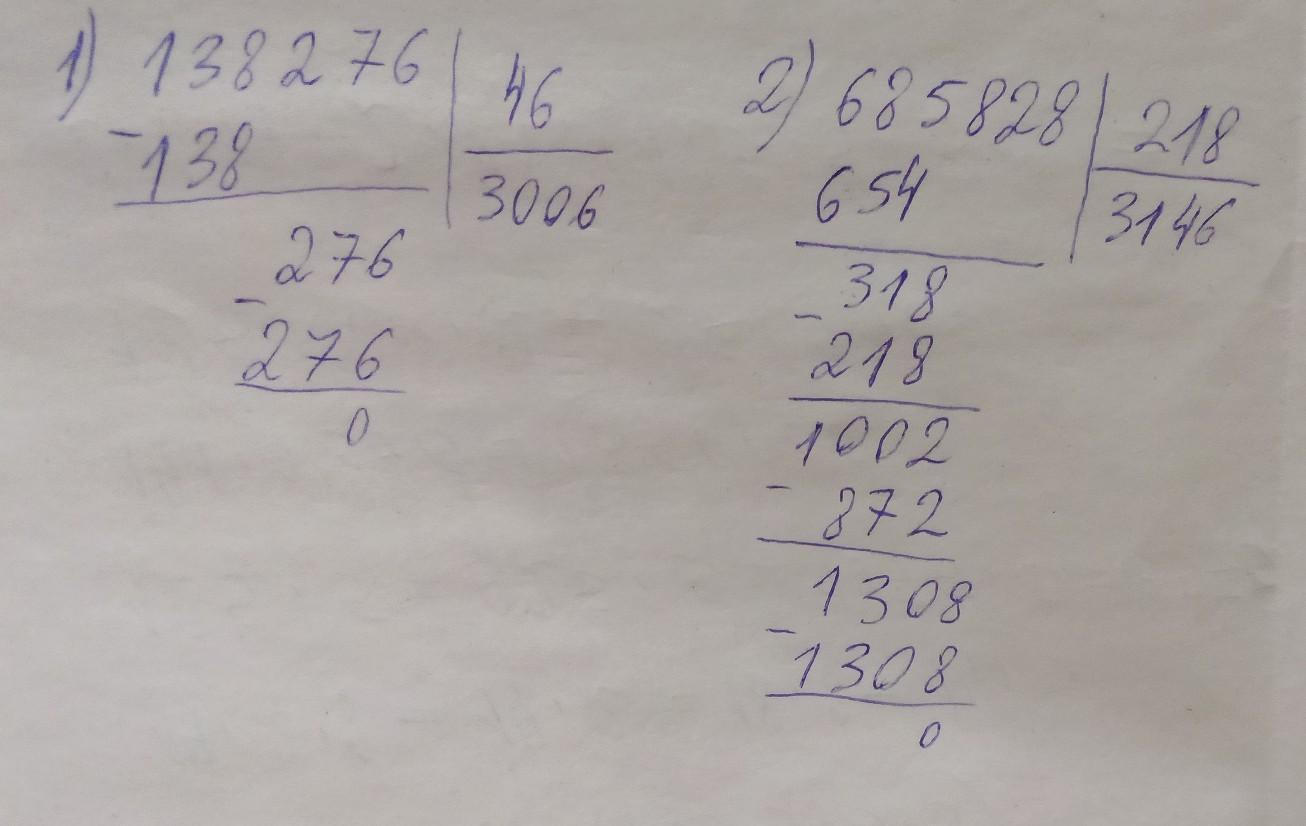 1) 138276 | 46
- 138 | 3006
276
- 276
0
2) 685828 | 218
654 | 3146
318
- 218
1002
- 872
1308
- 1308
0